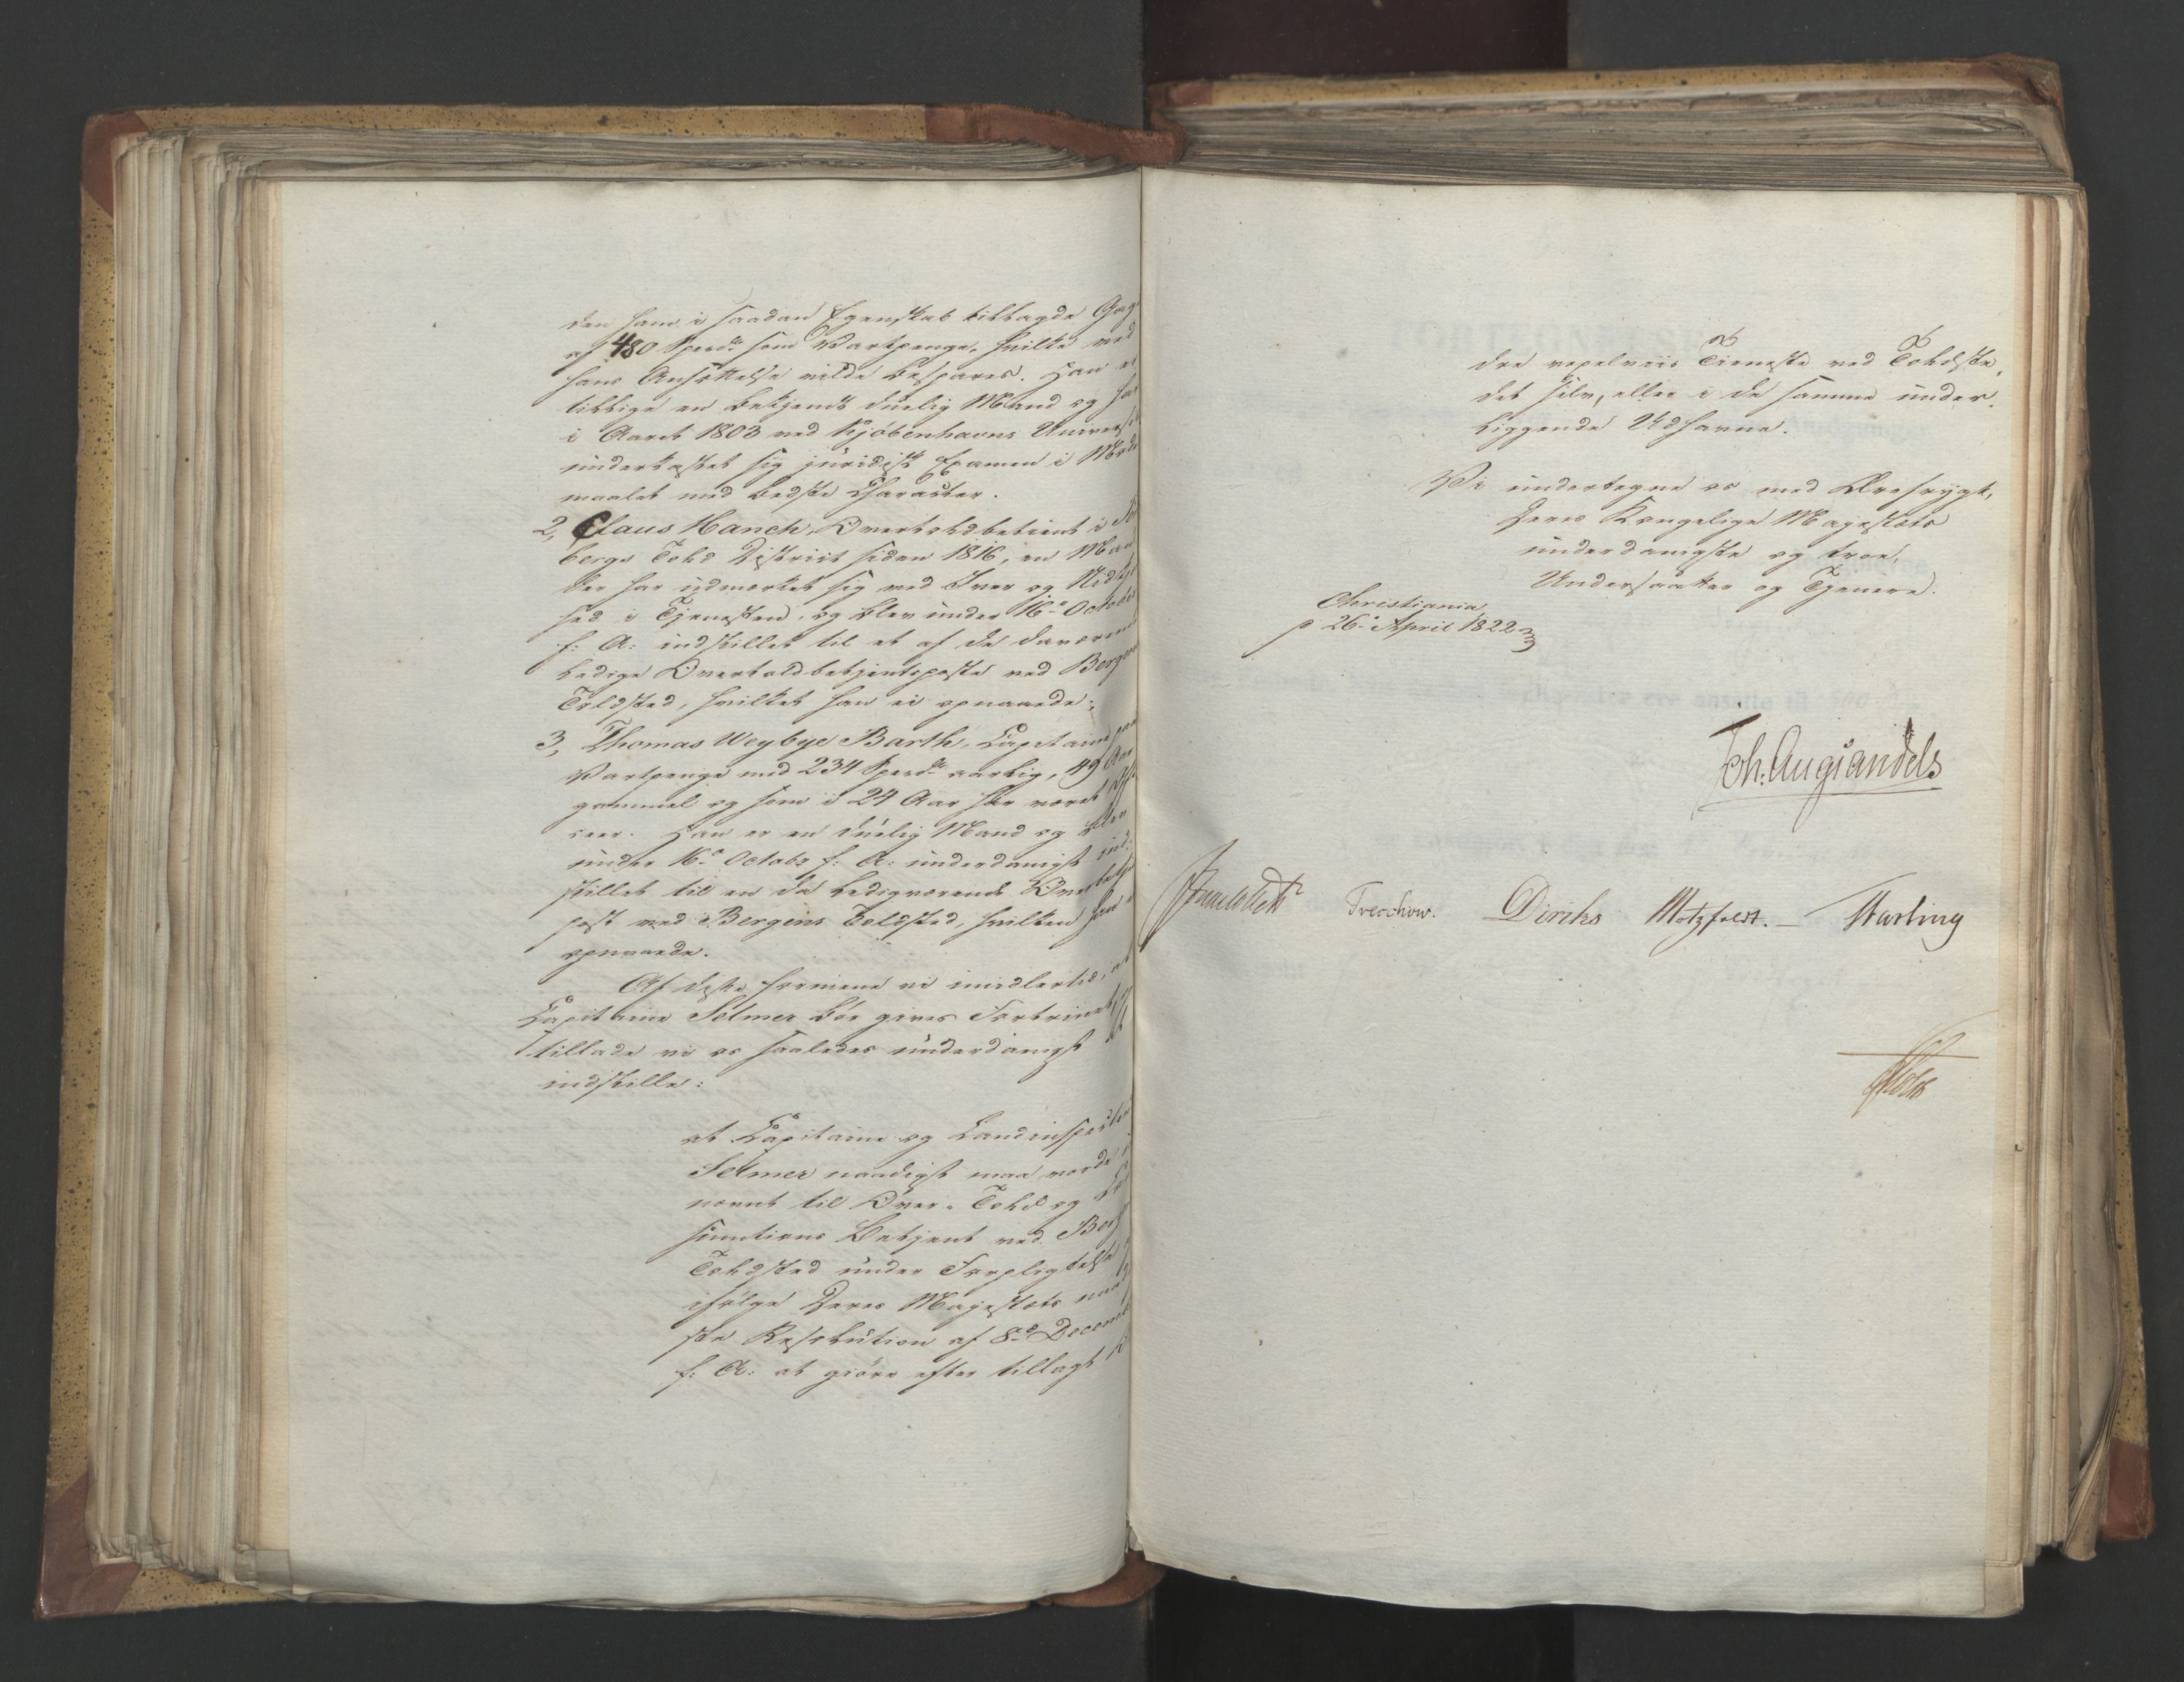 den ham i saadan Egenskab tillagde Gag
af 480 Spesdr som Vartpenge, hvilke ved
hans Ansættelse vilde bespares. Han er
tillige en bekjendt duelig Mand og har
i Aaret 1803 ved Kjøbenhavns Universit
underkastet sig juridisk Examen i Moders
maalet med bedste Character.
2, Claus Hanch, Overtoldbetient i
bergs Told District siden 1816, en Man
der har udmærket sig ved Iver og Nidkjær
hed i Tjenesten, og blev under 16de Octobr
f: A: indstillet til et af de daværend
ledige Overtoldbetjentsposte ved Bergens
Toldsted, hvilket han ei opnaaede;
3, Thomas Weybye Barth, Capitaine paa
Vartpenge med 234 Spesdr aarlig, 49 Aar
gammel og som i 24 Aar har været Offi
ceer. Han er en duelig Mand og blev
under 16de Octobr f: A: underdanigst ind-
stillet til en da ledigværende Overbetje
post ved Bergens Toldsted, hvilken han ei
opnaaede.
Af disse formene vi imidlertid, at
Capitaine Selmer bør gives Fortrinet
tillade vi os saaledes underdanigst at
indstille:
at Capitaine og Landinspecteur
Selmer naadigst maa vorde
nævnt til Over-Told og
sumtions Betjent ved Bergens
Toldsted under Forpligtelse
ifølge Deres Majestæts naadig
ste Resolution af 8de Decemb
f: A: at giøre efter tillagt
dre vexelviis Tieneste ved Toldste-
det selv, eller i de samme under-
liggende Udhavne.
Vi undertegne os med Ærefrygt,
Deres Kongelige Majestæts
underdanigste og troe
Undersaatter og Tjenere.
Christiania
p 26de April 1822
Joh: Aug: Sandels
Treschow. Diriks Motzfeldt. Harling
Holst